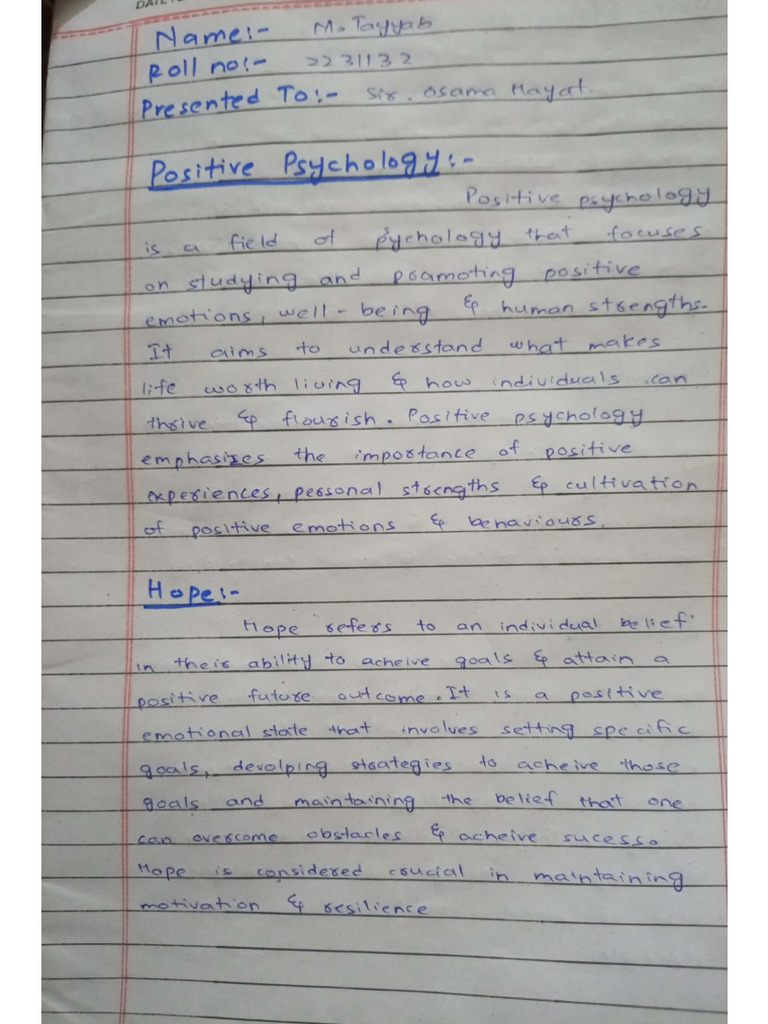 Name:- M. Tayyab
Roll no:- 2231132
Presented To:- Sir. Osama Hayat.
Positive Psychology:-
Positive psychology
is a field of pychology that focuses
on studying and pramoting positive
emotions, well-being & human strengths.
It aims to understand what makes
life worth living & how individuals can
thrive & flourish. Positive psychology
emphasizes the importance of positive
experiences, personal strengths & cultivation
of positive emotions & behaviours.
Hope:-
Hope refers to an individual belief
in their ability to acheive goals & attain a
positive future outcome. It is a positive
emotional state that involves setting specific
goals, devolping strategies to acheive those
goals and maintaining the belief that one
can overcome obstacles & acheive sucess.
Hope is considered crucial in maintaining
motivation & resilience